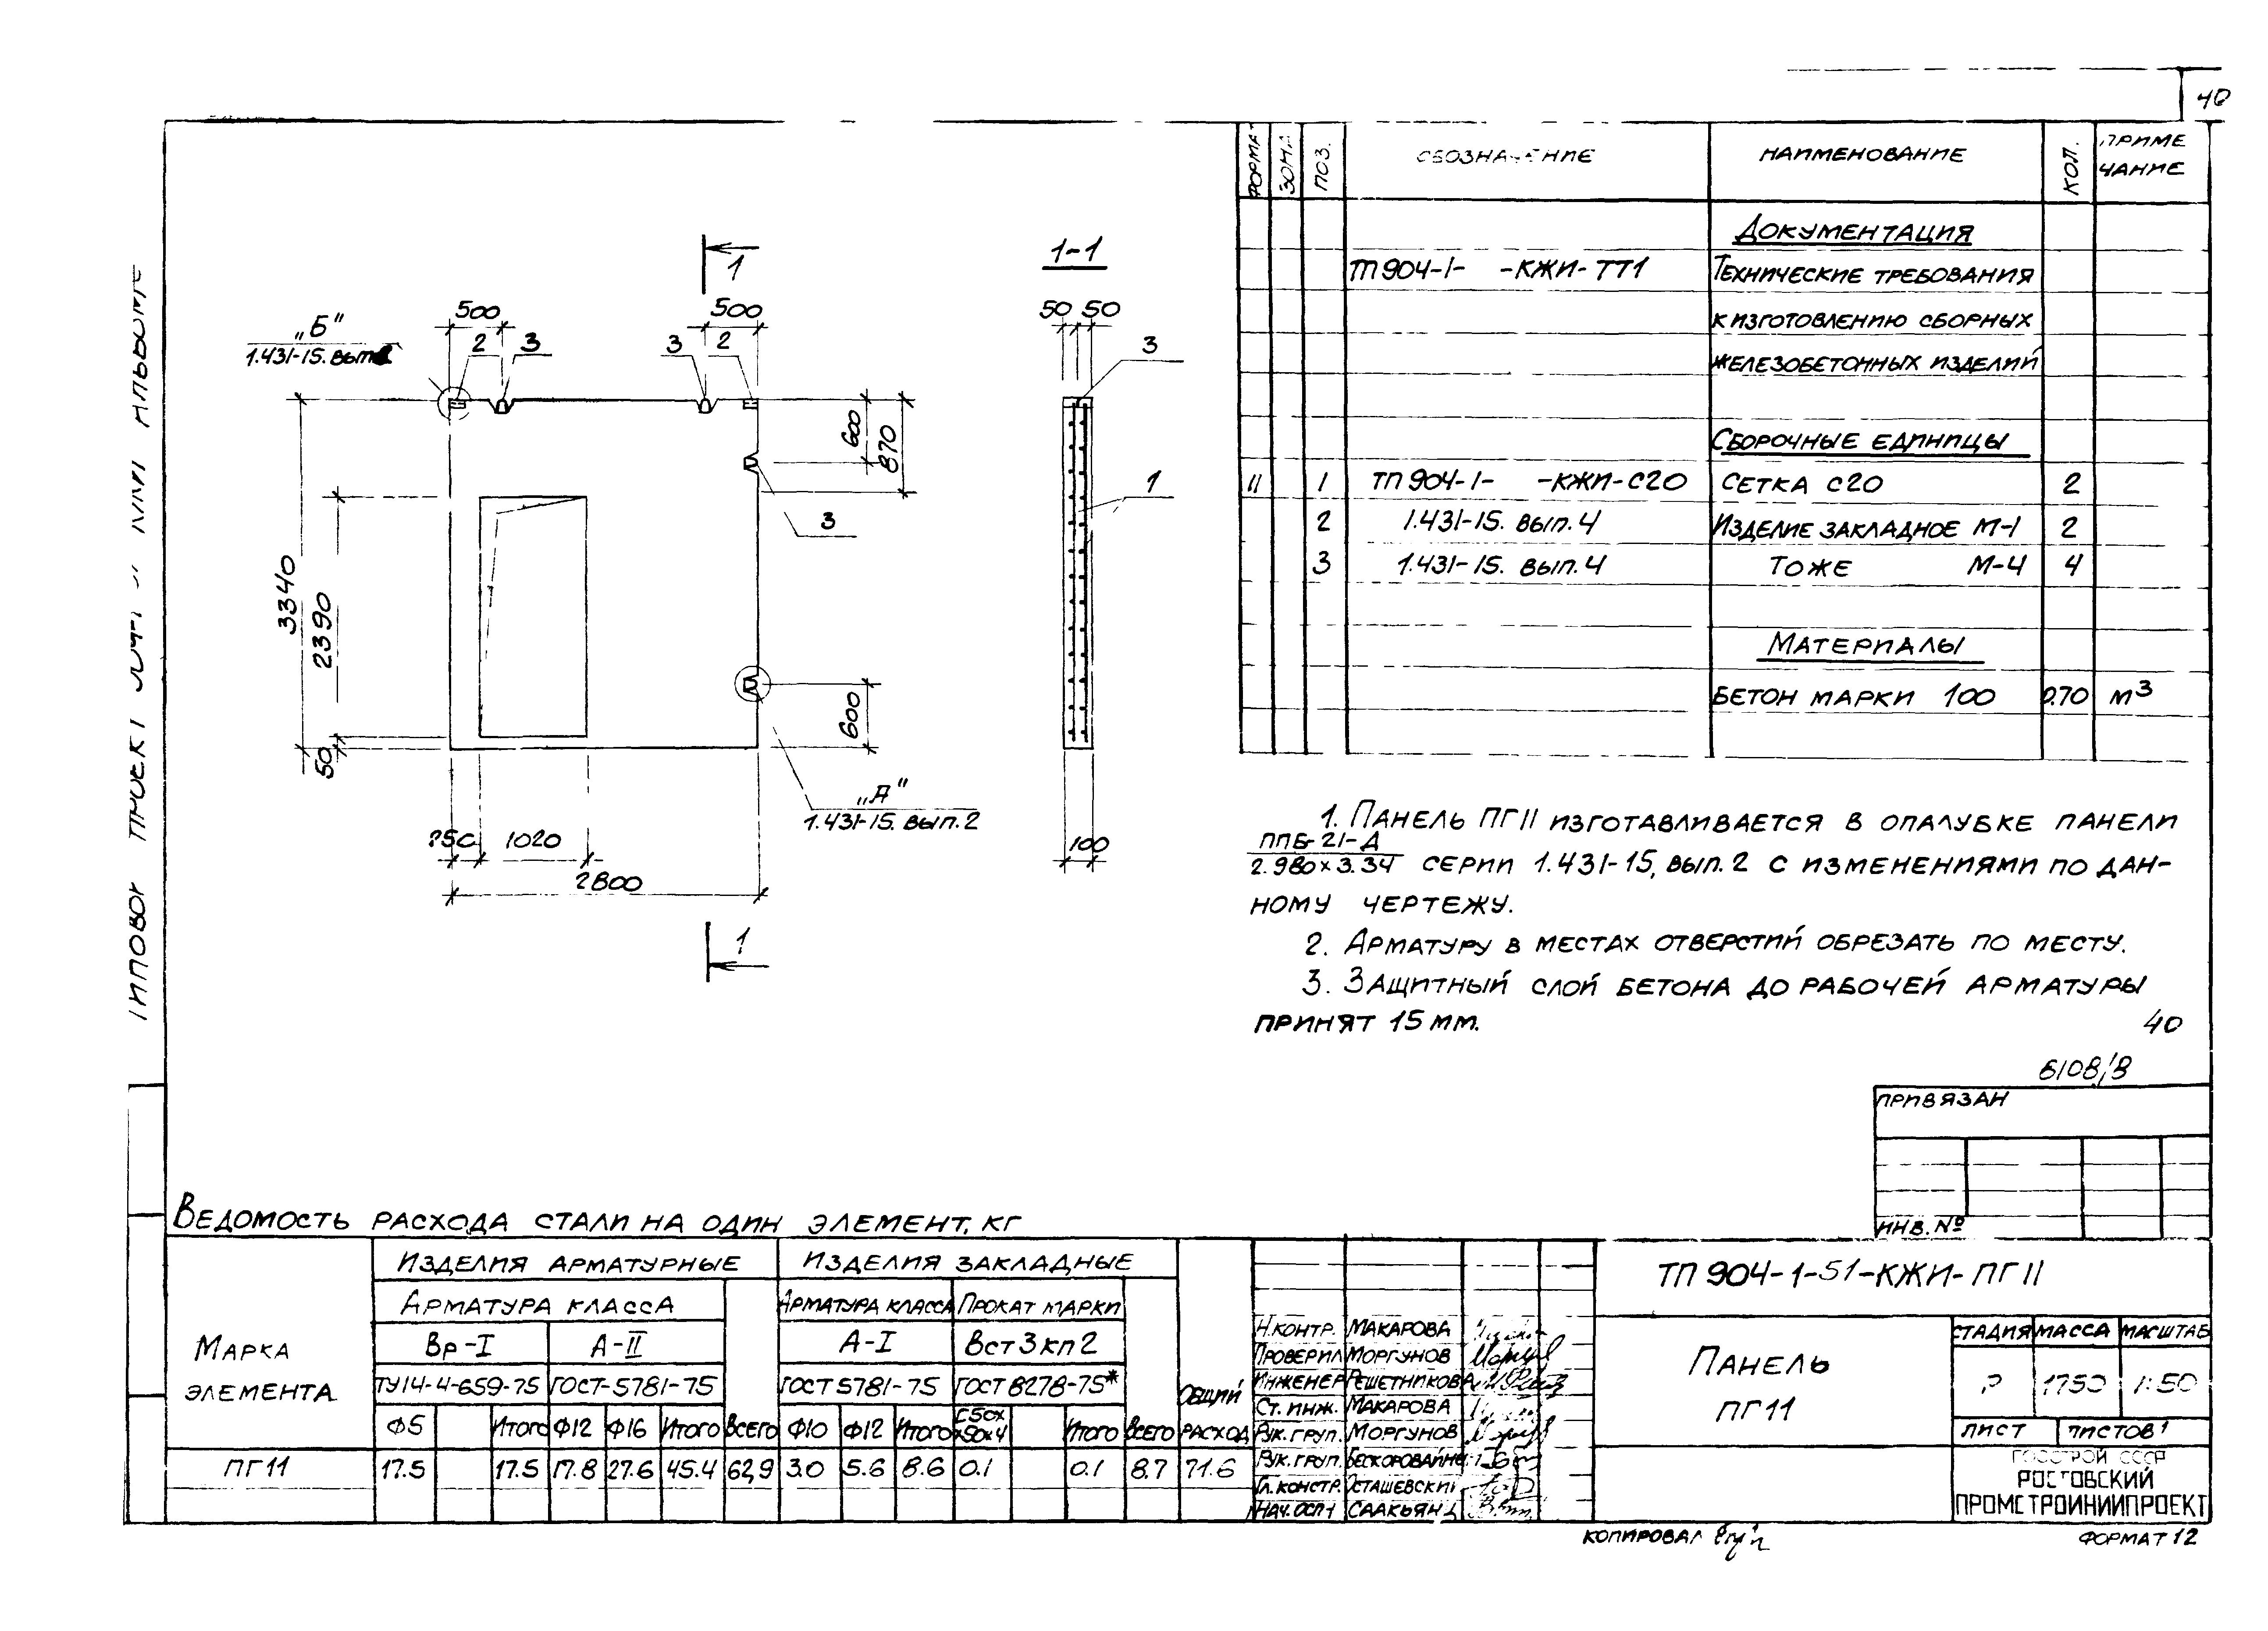 40
ЗОНА
ПОЗ.
НАИМЕНОВАНИЕ
КОЛ.
ПРИМЕ
ЧАНИЕ
ДОКУМЕНТАЦИЯ
ТП 904-1- -КЖИ-ТТ1 ТЕХНИЧЕСКИЕ ТРЕБОВАНИЯ
К ИЗГОТОВЛЕНИЮ СБОРНЫХ
ЖЕЛЕЗОБЕТОННЫХ ИЗДЕЛИЙ
СБОРОЧНЫЕ ЕДИНИЦЫ
11 1 ТП 904-1- -КЖИ-С20 СЕТКА С20 2
2 1.431-15. ВЫП.4 ИЗДЕЛИЕ ЗАКЛАДНОЕ М-1 2
3 1.431-15. ВЫП.4 ТОЖЕ М-4 4
МАТЕРИАЛЫ
БЕТОН МАРКИ 100 0.70 М3
1
1-1
500 500
50 50
„Б“
1.431-15.
2 3 3 2
3
600
870
3
1
3340
2390
50
600
„А“
1.431-15. ВЫП.2
1020
2800
100
1
1. ПАНЕЛЬ ПГ11 ИЗГОТАВЛИВАЕТСЯ В ОПАЛУБКЕ ПАНЕЛИ
ППБ-21-Д
2.980×3.34 СЕРИИ 1.431-15, ВЫП.2 С ИЗМЕНЕНИЯМИ ПО ДАН-
НОМУ ЧЕРТЕЖУ.
2. АРМАТУРУ В МЕСТАХ ОТВЕРСТИЙ ОБРЕЗАТЬ ПО МЕСТУ.
3. ЗАЩИТНЫЙ СЛОЙ БЕТОНА ДО РАБОЧЕЙ АРМАТУРЫ
ПРИНЯТ 15 ММ.
40
6108/8
ПРИВЯЗАН
ИНВ. №
ВЕДОМОСТЬ РАСХОДА СТАЛИ НА ОДИН ЭЛЕМЕНТ, КГ
МАРКА
ЭЛЕМЕНТА
ИЗДЕЛИЯ АРМАТУРНЫЕ ИЗДЕЛИЯ ЗАКЛАДНЫЕ
АРМАТУРА КЛАССА АРМАТУРА КЛАССА ПРОКАТ МАРКИ
Вр-I А-II А-I ВСт3кп2
ТУ14-4-659-75 ГОСТ-5781-75 ГОСТ 5781-75 ГОСТ 8278-75*
ОБЩИЙ
РАСХОД
Ф5 ИТОГО Ф12 Ф16 ИТОГО ВСЕГО Ф10 Ф12 ИТОГО С50×
×50×4 ИТОГО ВСЕГО
ПГ11 17.5 17.5 17.8 27.6 45.4 62,9 3.0 5.6 8.6 0.1 0.1 8.7 71.6
Н.КОНТР. МАКАРОВА
ПРОВЕРИЛ МОРГУНОВ
ИНЖЕНЕР РЕШЕТНИКОВА
СТ. ИНЖ. МАКАРОВА
РУК. ГРУП. МОРГУНОВ
РУК. ГРУП.
ГЛ. КОНСТР. ОСТАШЕВСКИЙ
СААКЬЯНЦ
ТП 904-1-51-КЖИ-ПГ11
ПАНЕЛЬ
ПГ11
СТАДИЯ МАССА МАСШТАБ
Р 1750 1:50
ЛИСТ ЛИСТОВ 1
ГОССТРОЙ СССР
РОСТОВСКИЙ
ПРОМСТРОЙНИИПРОЕКТ
КОПИРОВАЛ
ФОРМАТ 12